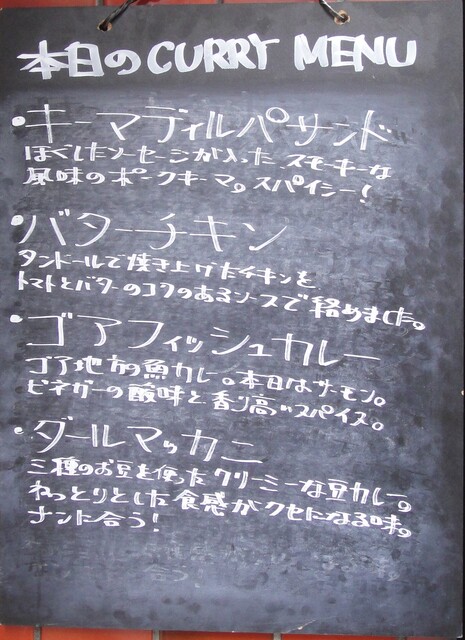 本日のCURRY MENU
・キーマディルパサンド
ほぐしたソーセージが入った、スモーキーな
風味のポークキーマ。スパイシー！
・バターチキン
タンドールで焼き上げたチキンを
トマトとバターのコクのあるソースで絡めました。
・ゴアフィッシュカレー
ゴア地方の魚カレー。本日はサーモン。
ビネガーの酸味と香り高いスパイス。
・ダールマッカニ
三種のお豆を使ったクリーミーな豆カレー。
ねっとりとした食感がクセになる味。
ナンに合う！